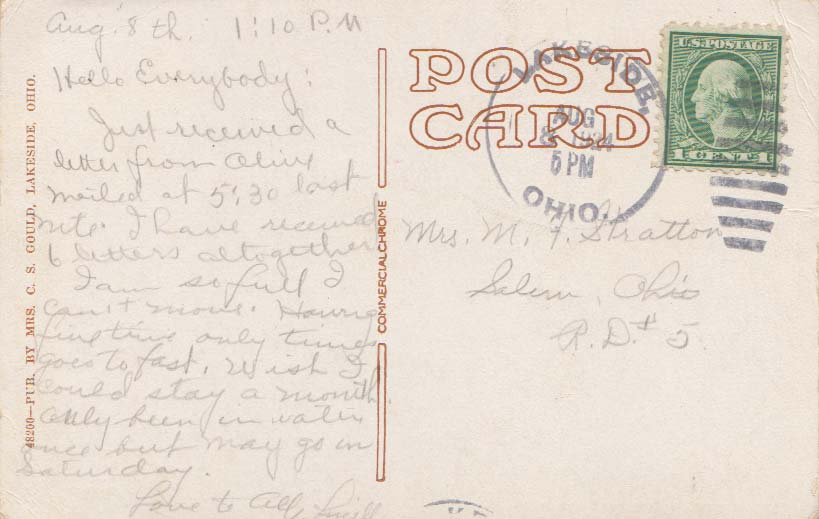 Aug. 8th. 1:10 P.M
Hello Everybody:
Just received a
letter from Olive
mailed at 5:30 last
nite. I have received
6 letters altogether
I am so full I
can't move. Having
fine time only times
goes to fast. Wish I
could stay a month.
Only been in water
once but may go in
Saturday.
Love to All,
48200—PUB. BY MRS. C. S. GOULD, LAKESIDE, OHIO.
COMMERCIALCHROME
POST
CARD
LAKESIDE,
AUG
8 1924
5 PM
OHIO.
U.S. POSTAGE
1 CENT 1
Mrs. M. F. Stratton
Salem, Ohio
R.D.# 5.